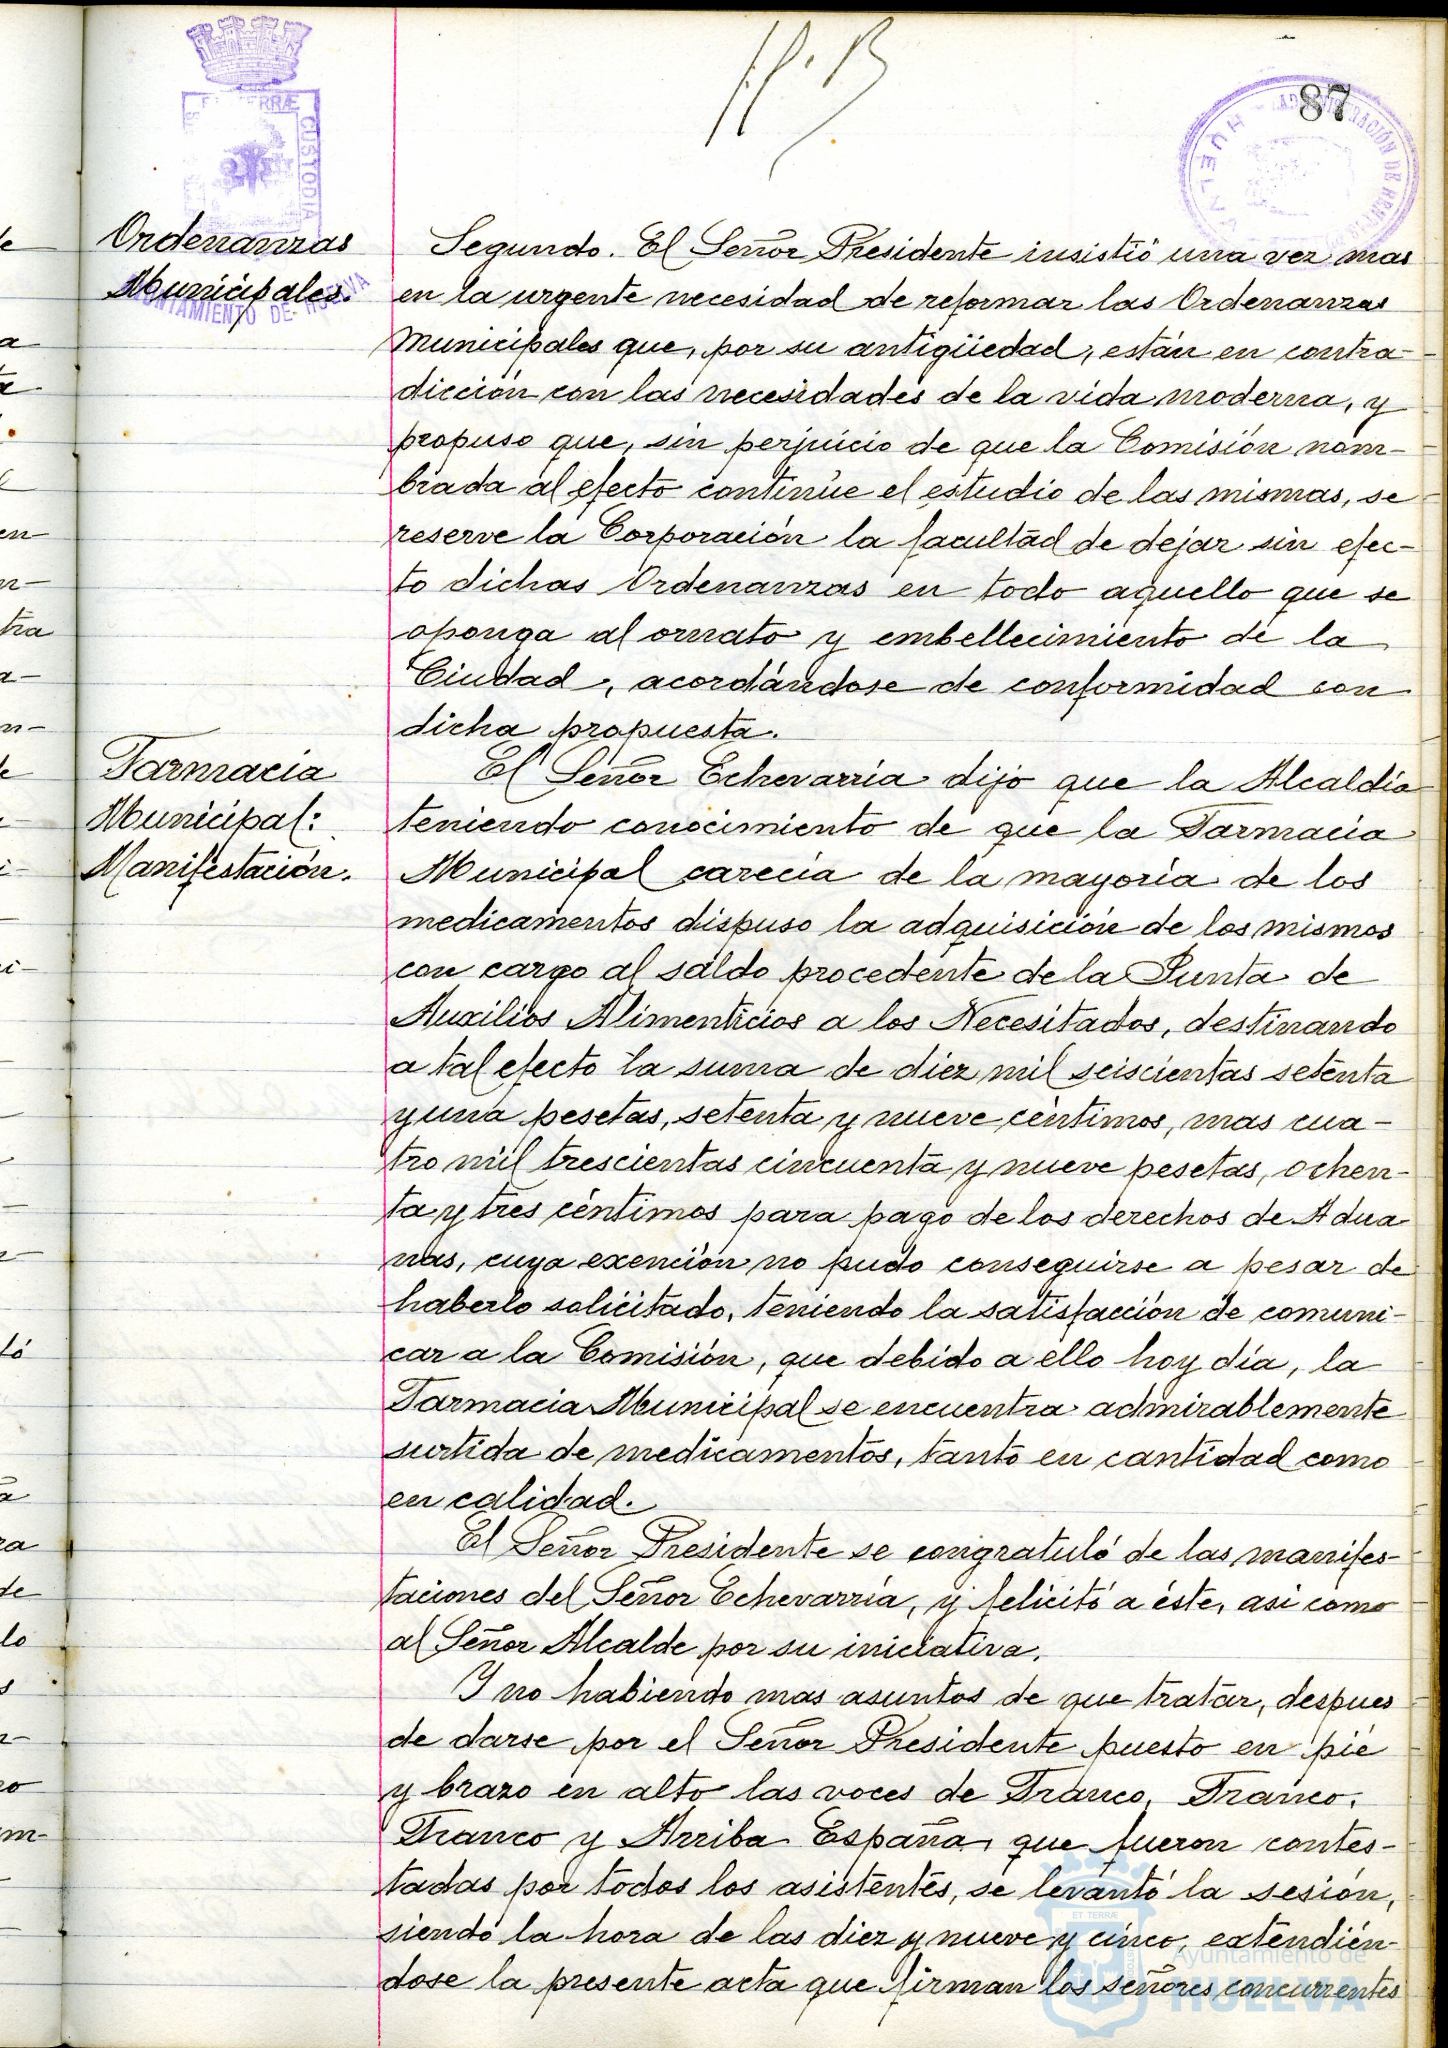 87
Ordenanzas
Municipales.
Segundo. El Señor Presidente insistió una vez mas
en la urgente necesidad de reformar las Ordenanzas
Municipales que, por su antigüedad, están en contra-
dicción con las necesidades de la vida moderna, y
propuso que, sin perjuicio de que la Comisión nom-
brada al efecto continúe el estudio de las mismas, se
reserve la Corporación la facultad de dejar sin efec-
to dichas Ordenanzas en todo aquello que se
oponga al ornato y embellecimiento de la
Ciudad, acordándose de conformidad con
dicha propuesta.
Farmacia
Municipal:
Manifestación.
El Señor Echevarría dijo que la Alcaldía
teniendo conocimiento de que la Farmacia
Municipal carecía de la mayoría de los
medicamentos dispuso la adquisición de los mismos
con cargo al saldo procedente de la Junta de
Auxilios Alimenticios a los Necesitados, destinando
a tal efecto la suma de diez mil seiscientas setenta
y una pesetas, setenta y nueve céntimos, mas cua-
tro mil trescientas cincuenta y nueve pesetas, ochen-
ta y tres céntimos para pago de los derechos de Adua
nas, cuya exención no pudo conseguirse a pesar de
haberlo solicitado, teniendo la satisfacción de comuni-
car a la Comisión, que debido a ello hoy día, la
Farmacia Municipal se encuentra admirablemente
surtida de medicamentos, tanto en cantidad como
en calidad.
El Señor Presidente se congratuló de las manifes-
taciones del Señor Echevarría, y felicitó a éste, asi como
al Señor Alcalde por su iniciativa.
Y no habiendo mas asuntos de que tratar, despues
de darse por el Señor Presidente puesto en pié
y brazo en alto las voces de Franco, Franco,
Franco y Arriba España, que fueron contes-
tadas por todos los asistentes, se levantó la sesión,
siendo la hora de las diez y nueve y cinco, extendién-
dose la presente acta que firman los señores concurrentes
AYUNTAMIENTO DE HUELVA
CUSTODIA
HUELVA
Ayuntamiento de
HUELVA